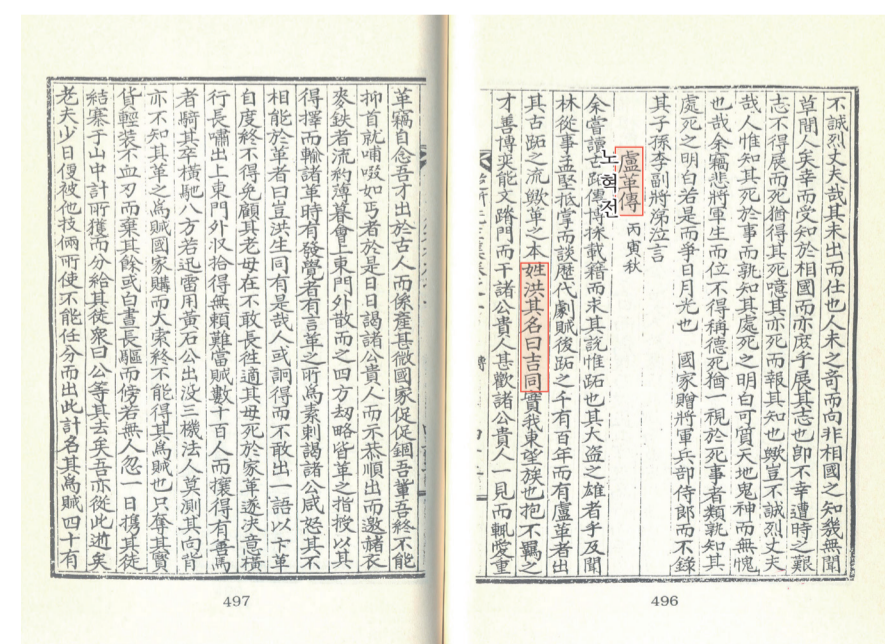 不誠烈丈夫哉其未出而仕也人未之奇而向非相國之知幾無聞
草間人矣幸而受知於相國而亦庶乎展其志也卽不幸遭時之艱
志不得展而死猶得其死噫其亦死而報其知也歟豈不誠烈丈夫
哉人惟知其死於事而孰知其處死之明白可質天地鬼神而無愧
也哉余竊悲將軍生而位不得稱德死猶一視於死事者類孰知其
處死之明白若是而爭日月光也 國家贈將軍兵部侍郎而不錄
其子孫李副將涕泣言
盧革傳 丙寅秋
노혁전
余嘗讀古跖傳博採載籍而求其說惟跖也其大盜之雄者乎及聞
林從事孟堅抵掌而談歷代劇賊後跖之千有百年而有盧革者出
其古跖之流歟革之本姓洪其名曰吉同實我東望族也抱不羈之
才善博奕能文踏門而干諸公貴人甚歡諸公貴人一見而輒愛重
496
革竊自念吾才出於古人而係產甚微國家促促錮吾輩吾終不能
抑首就哺啜如丐者於是日日謁諸公貴人而示恭順出而邀諸衣
麥鉄者流約薄暮會上東門外散而之四方刼略皆革之指授以其
得擇而輸諸革時有發覺者有言革之所爲素刺謁諸公咸怒其不
相能於革者曰豈洪生同有是哉人或詗得而不敢出一語以卞革
自度終不得免顧其老母在不敢長往適其母死於家革遂決意橫
行長嘯出上東門外収拾得無頼難當賊數十百人而攘得有善馬
者騎其卒橫馳八方若迅雷用黃石公出没三機法人莫測其向背
亦不知其革之爲賊國家購而大索終不能得其爲賊也只奪其寶
貨輕装不血刃而棄其餘或白晝長驅而傍若無人忽一日携其徒
結寨于山中計所獲而分給其徒衆曰公等其去矣吾亦從此逝矣
老夫少日侵被他技倆所使不能任分而出此計名其爲賊四十有
497